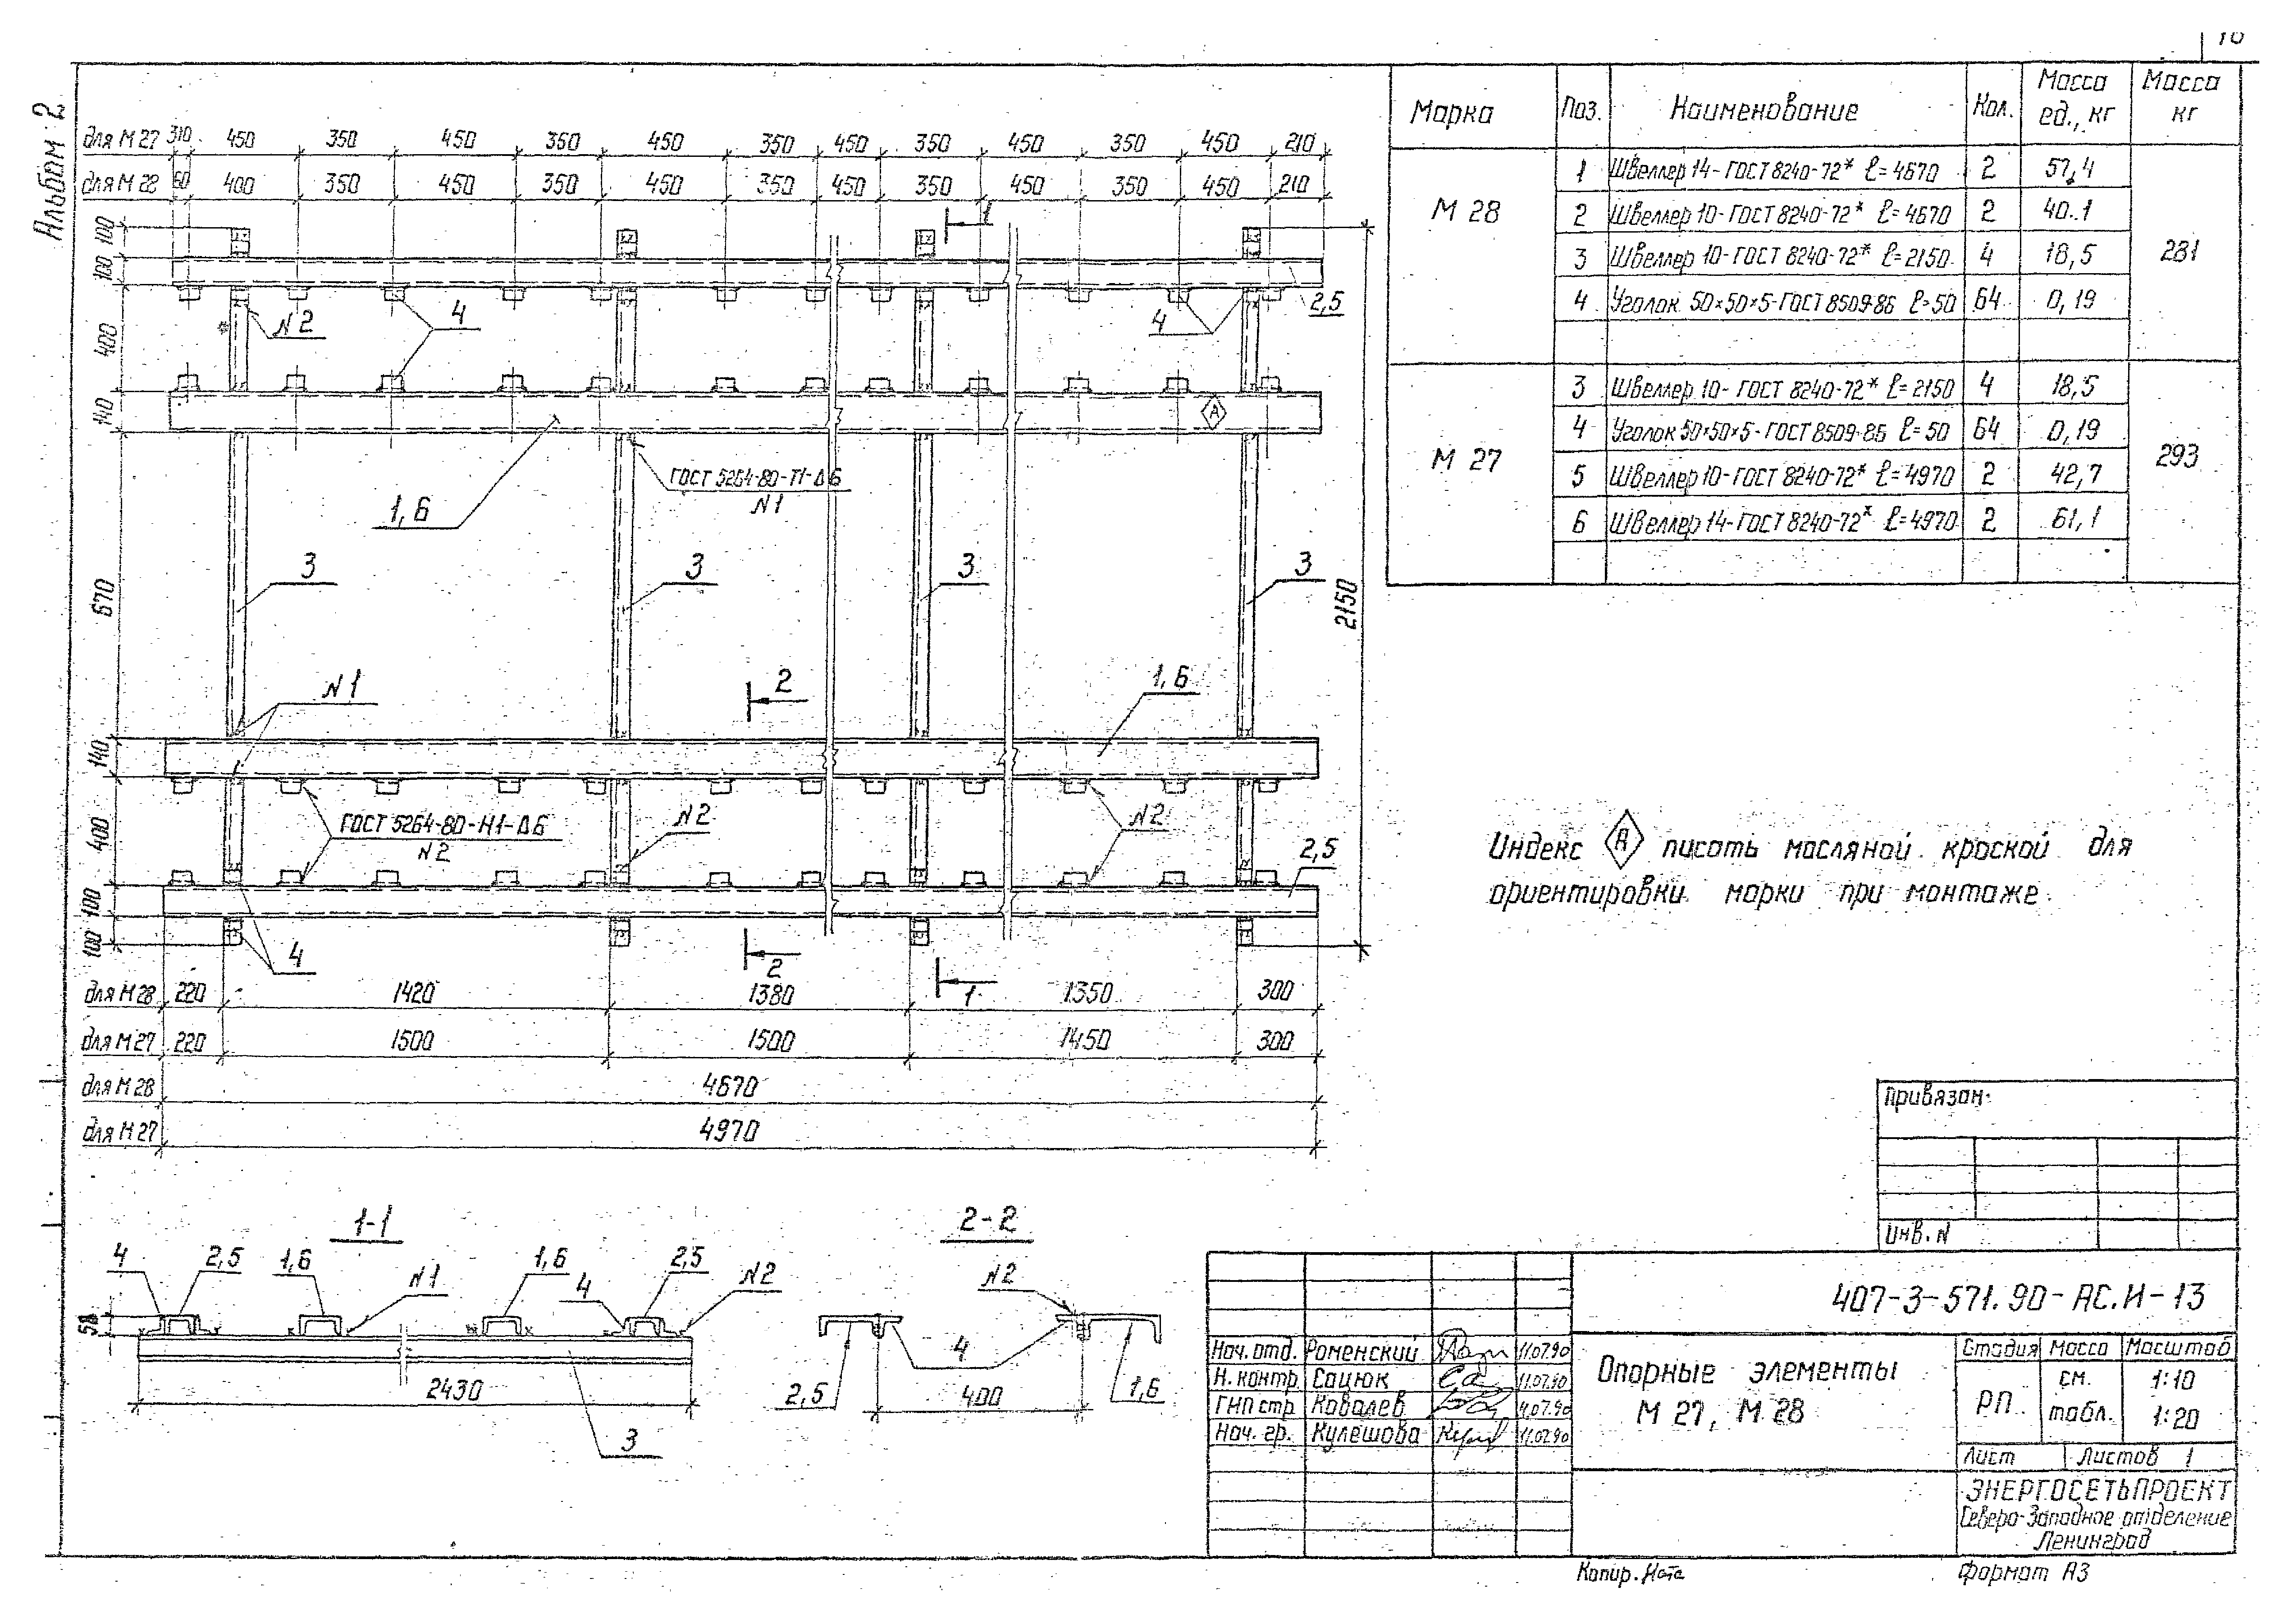 Альбом 2
для М 27 310 450 350 450 350 450 350 450 350 450 350 450 210
для М 28 60 400 350 450 350 450 350 450 350 450 350 450 210
100
100
400
140
670
140
400
100
100
2150
1
4
N2
4
2,5
А
ГОСТ 5264-80-Т1-Δ6
N1
1,6
3
3
3
3
N1
2
1,6
ГОСТ 5264-80-Н1-Δ6
N2
N2
N2
2,5
4
2
1
для М 28 220 1420 1380 1350 300
для М 27 220 1500 1500 1450 300
для М 28 4670
для М 27 4970
1-1
4 2,5 1,6 N1 1,6 4 2,5 N2
2430
3
2-2
N2
4
2,5 400 1,6
Марка Поз. Наименование Кол. Масса ед., кг Масса кг
М 28 281
1 Швеллер 14-ГОСТ 8240-72* ℓ=4670 2 57,4
2 Швеллер 10-ГОСТ 8240-72* ℓ=4670 2 40.1
3 Швеллер 10-ГОСТ 8240-72* ℓ=2150 4 18,5
4 Уголок 50×50×5-ГОСТ 8509-86 ℓ=50 64 0,19
М 27 293
3 Швеллер 10-ГОСТ 8240-72* ℓ=2150 4 18,5
4 Уголок 50×50×5-ГОСТ 8509-86 ℓ=50 64 0,19
5 Швеллер 10-ГОСТ 8240-72* ℓ=4970 2 42,7
6 Швеллер 14-ГОСТ 8240-72* ℓ=4970 2 61,1
Индекс А писать масляной краской для
ориентировки марки при монтаже.
Привязан:
Инв. N
407-3-571.90-АС.И-13
Нач. отд. Роменский 11.07.90
Н. контр. Сацюк 11.07.90
ГИП стр. Ковалев 11.07.90
Нач. гр. Кулешова 11.07.90
Опорные элементы
М 27, М 28
Стадия Масса Масштаб
РП см. табл. 1:10 1:20
Лист Листов 1
ЭНЕРГОСЕТЬПРОЕКТ
Северо-Западное отделение
Ленинград
Копир.
Формат А3